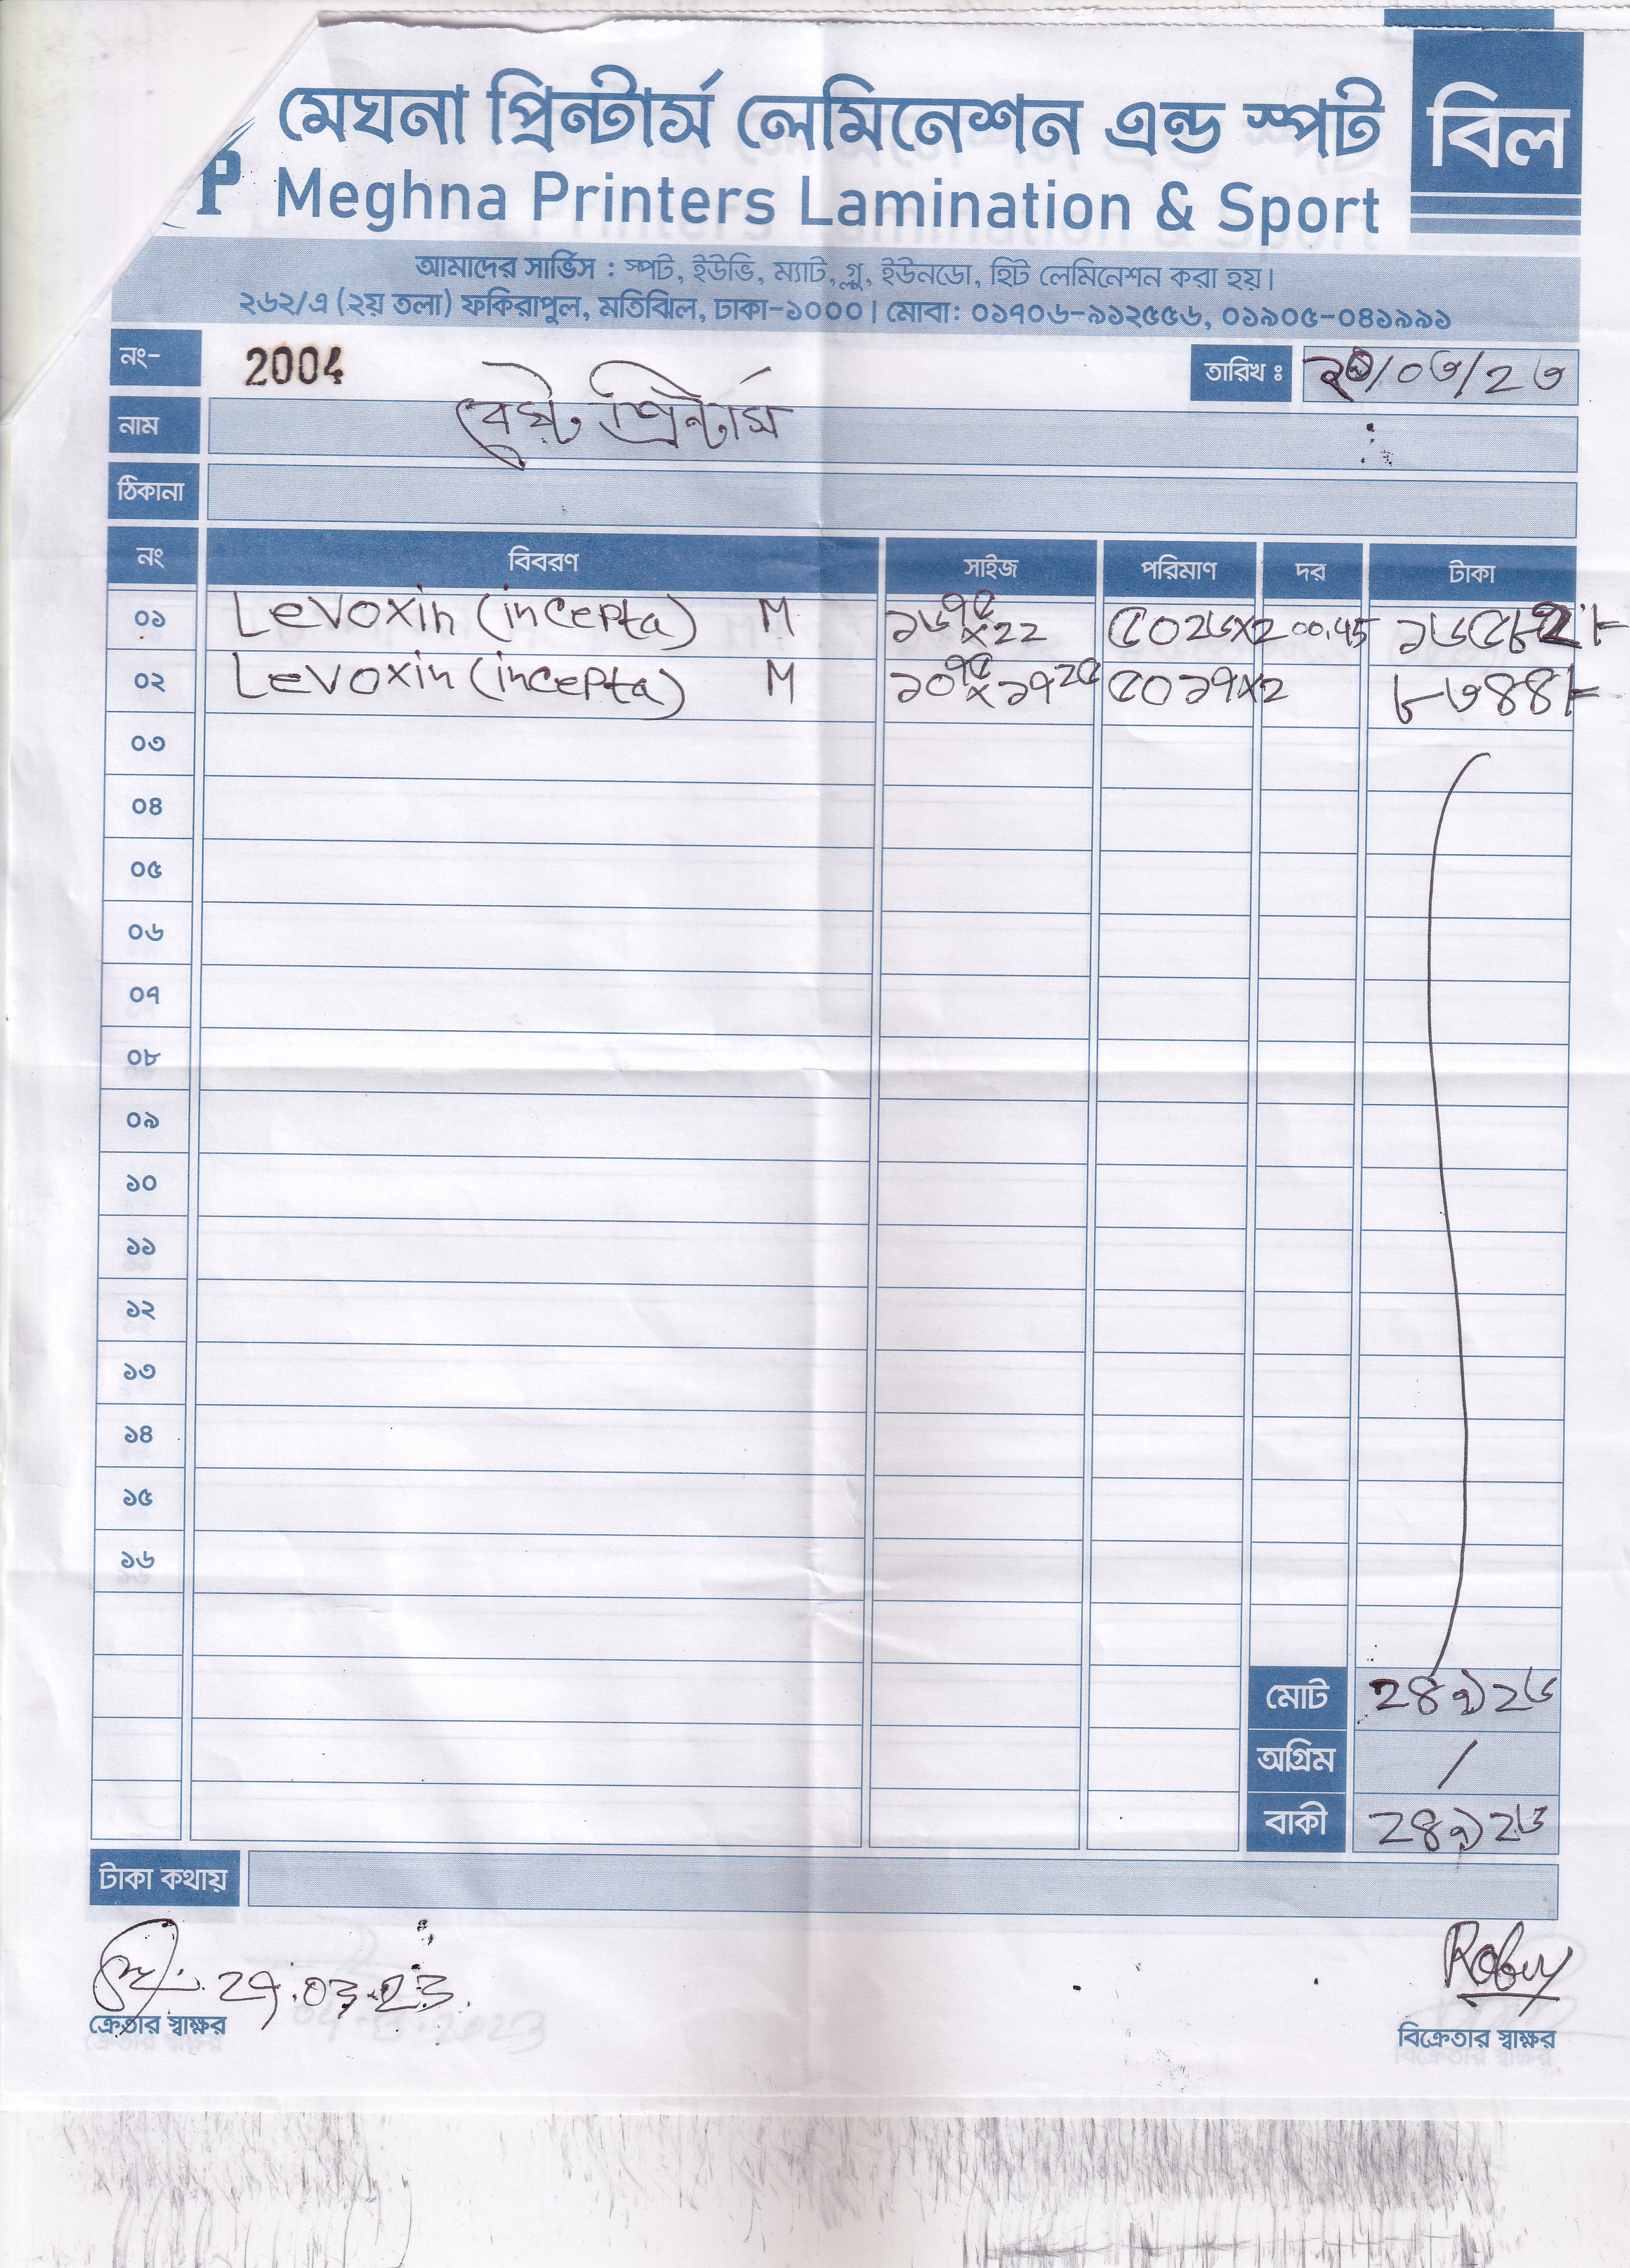 মেঘনা প্রিন্টার্স লেমিনেশন এন্ড স্পট
বিল
P
Meghna Printers Lamination & Sport
আমাদের সার্ভিস : স্পট, ইউভি, ম্যাট, গ্লু, ইউনডো, হিট লেমিনেশন করা হয়।
২৬২/এ (২য় তলা) ফকিরাপুল, মতিঝিল, ঢাকা-১০০০। মোবা: ০১৭০৬-৯১২৫৫৬, ০১৯০৫-০৪১৯৯১
নং- 2004 তারিখ ঃ /০৩/২৩
নাম বেষ্ট প্রিন্টার্স
ঠিকানা
নং বিবরণ সাইজ পরিমাণ দর টাকা
০১ Levoxin (incepta) M ১৬৭৫ x ২২ ৫০২৬x২ 00.45 ১৬৫৮২/-
০২ Levoxin (incepta) M ১০৭৫ x ১৭২৫ ৫০১৭x২ ৮৩৪৪/-
০৩
০৪
০৫
০৬
০৭
০৮
০৯
১০
১১
১২
১৩
১৪
১৫
১৬
মোট ২৪৯২৬
অগ্রিম /
বাকী ২৪৯২৬
টাকা কথায়
29.03.23 Robiy
ক্রেতার স্বাক্ষর বিক্রেতার স্বাক্ষর